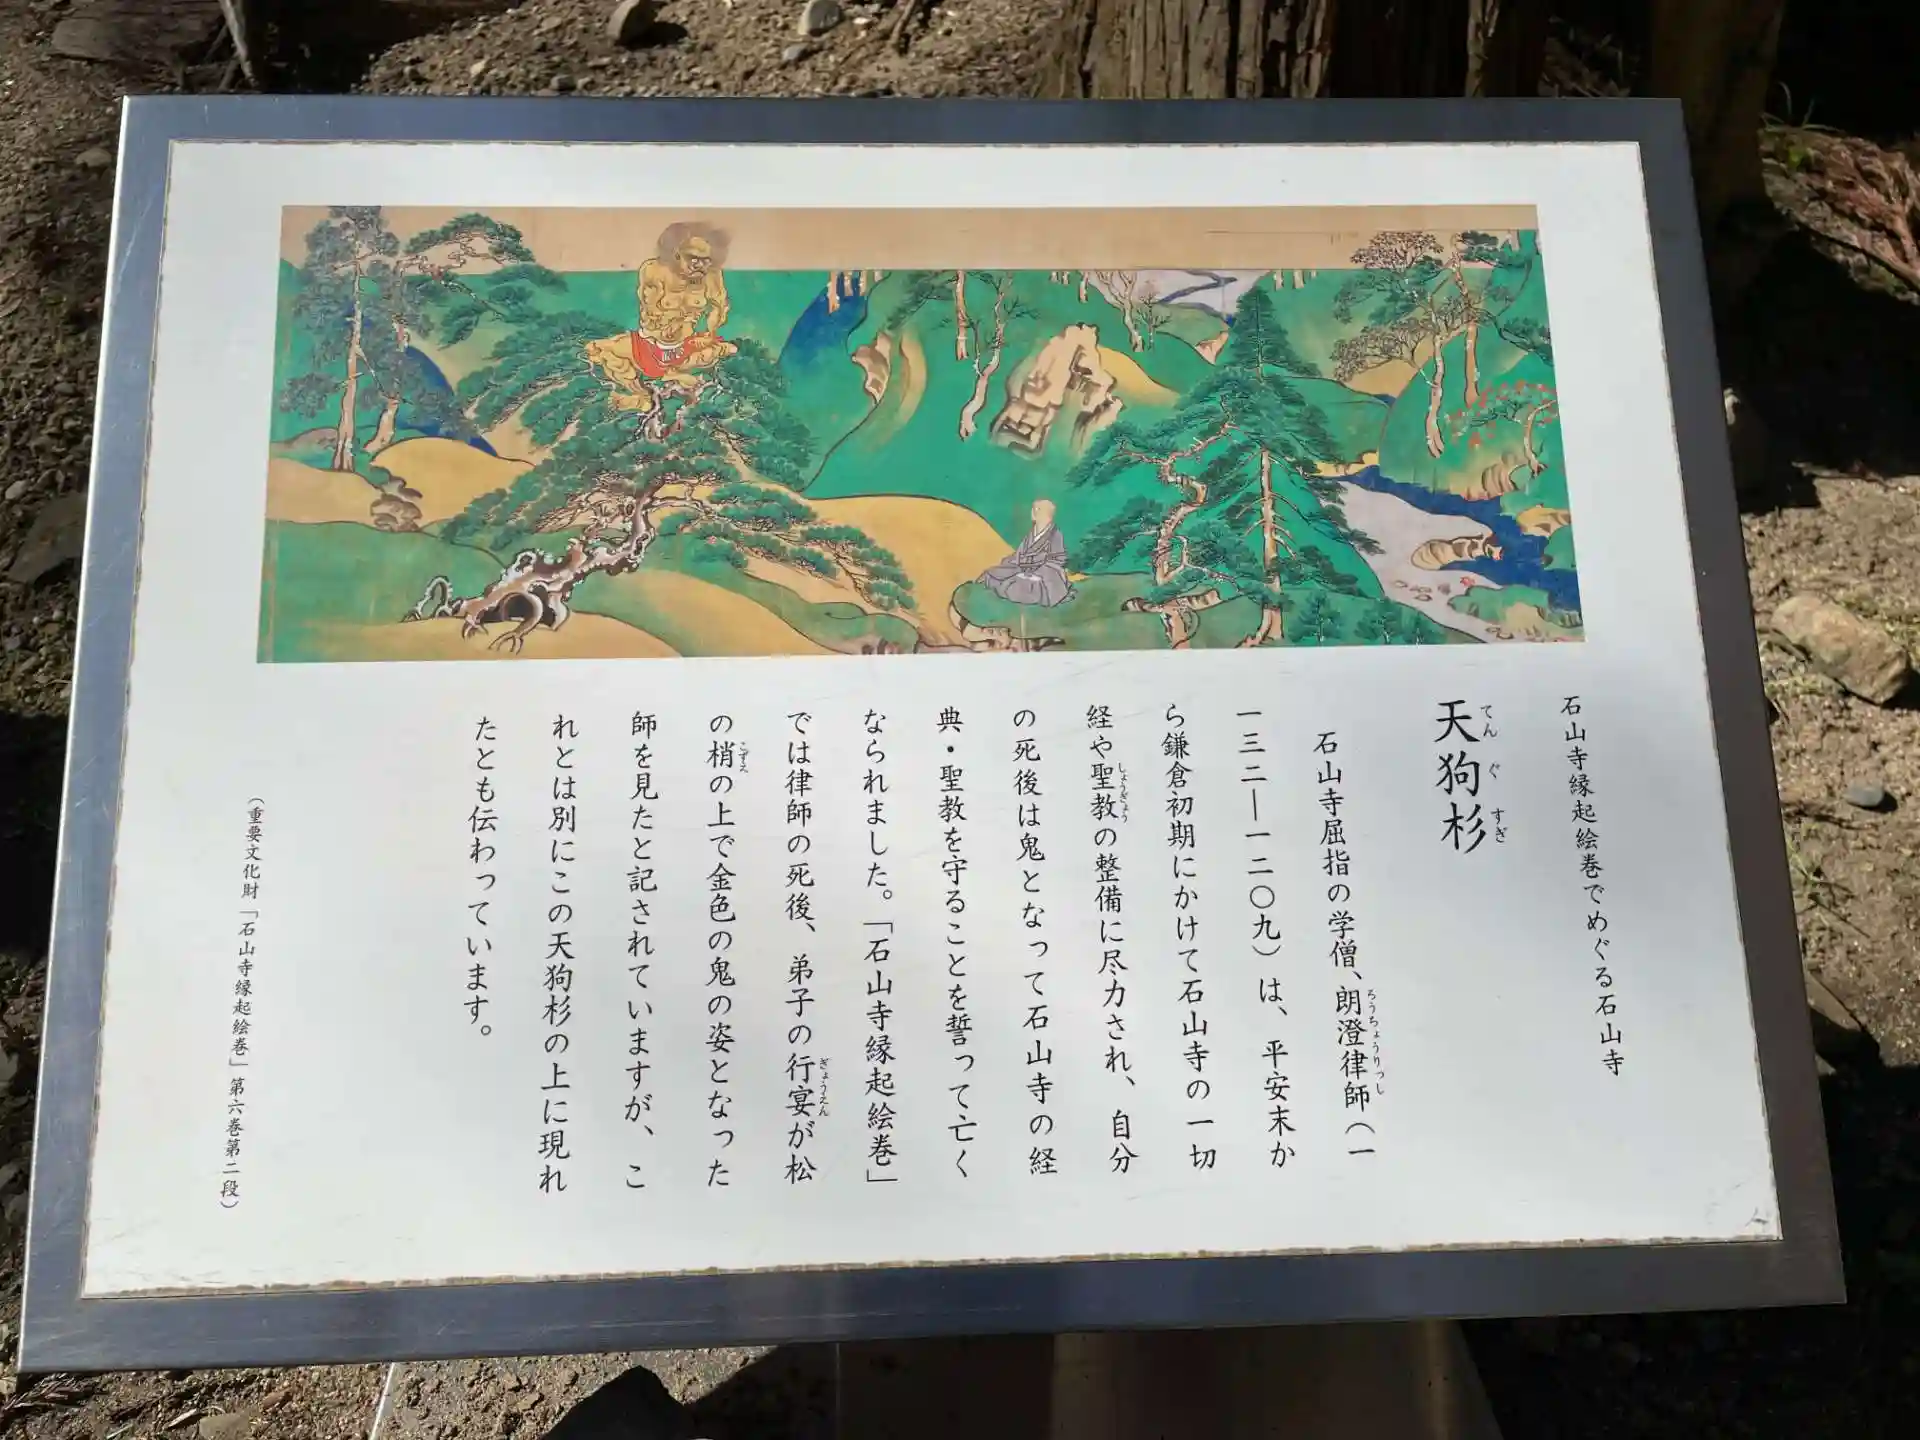 石山寺縁起絵巻でめぐる石山寺
天狗杉
てんぐすぎ
石山寺屈指の学僧、朗澄律師（一
ろうちょうりっし
一三二―一二〇九）は、平安末か
ら鎌倉初期にかけて石山寺の一切
経や聖教の整備に尽力され、自分
しょうぎょう
の死後は鬼となって石山寺の経
典・聖教を守ることを誓って亡く
なられました。「石山寺縁起絵巻」
では律師の死後、弟子の行宴が松
ぎょうえん
の梢の上で金色の鬼の姿となった
こずえ
師を見たと記されていますが、こ
れとは別にこの天狗杉の上に現れ
たとも伝わっています。
（重要文化財「石山寺縁起絵巻」第六巻第二段）